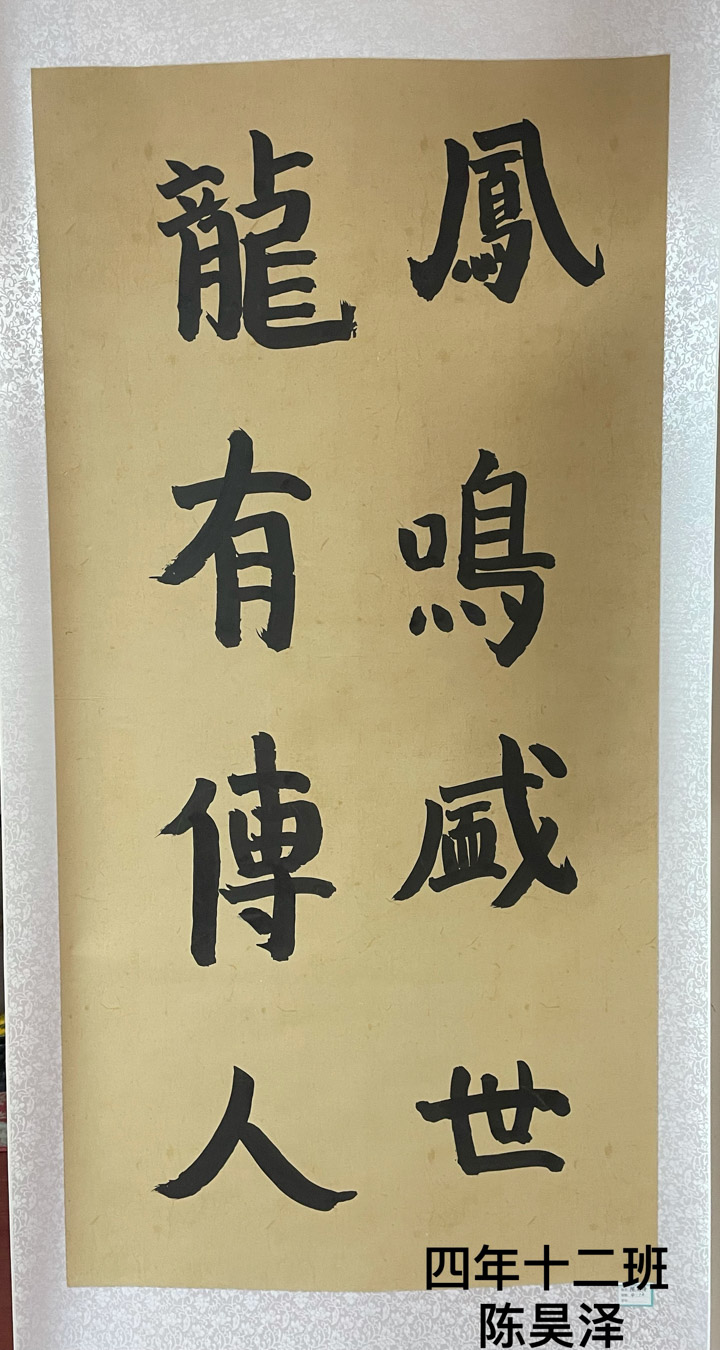 鳳鳴盛世
龍有傳人
四年十二班
陈昊泽